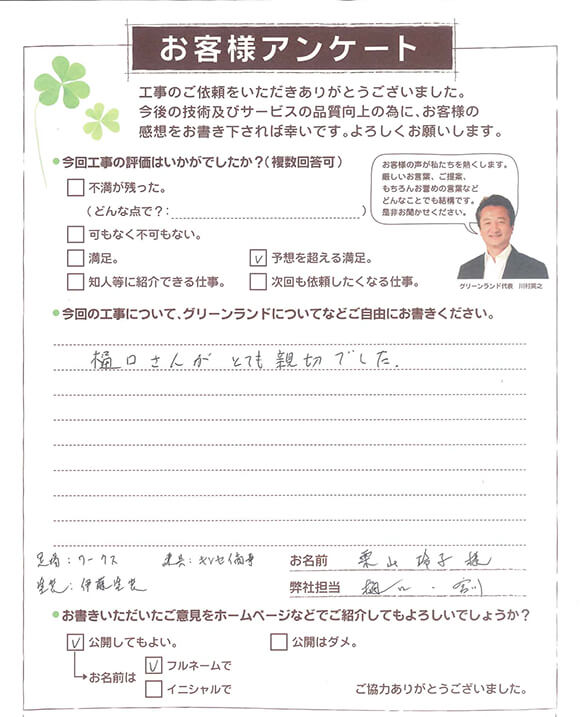 お客様アンケート
工事のご依頼をいただきありがとうございました。
今後の技術及びサービスの品質向上の為に、お客様の
感想をお書き下されば幸いです。よろしくお願いします。
今回工事の評価はいかがでしたか？(複数回答可)
不満が残った。
(どんな点で？:)
可もなく不可もない。
満足。
予想を超える満足。
知人等に紹介できる仕事。
次回も依頼したくなる仕事。
お客様の声が私たちを熱くします。
厳しいお言葉、ご提案、
もちろんお誉めの言葉など
どんなことでも結構です。
是非お聞かせください。
グリーンランド代表 川村真之
今回の工事について、グリーンランドについてなどご自由にお書きください。
樋口さんが とても親切でした.
足場:ワークス
塗装:伊藤塗装
お名前 栗山 玲子 様
弊社担当 樋口・
お書きいただいたご意見をホームページなどでご紹介してもよろしいでしょうか？
公開してもよい。
公開はダメ。
お名前は
フルネームで
イニシャルで
ご協力ありがとうございました。